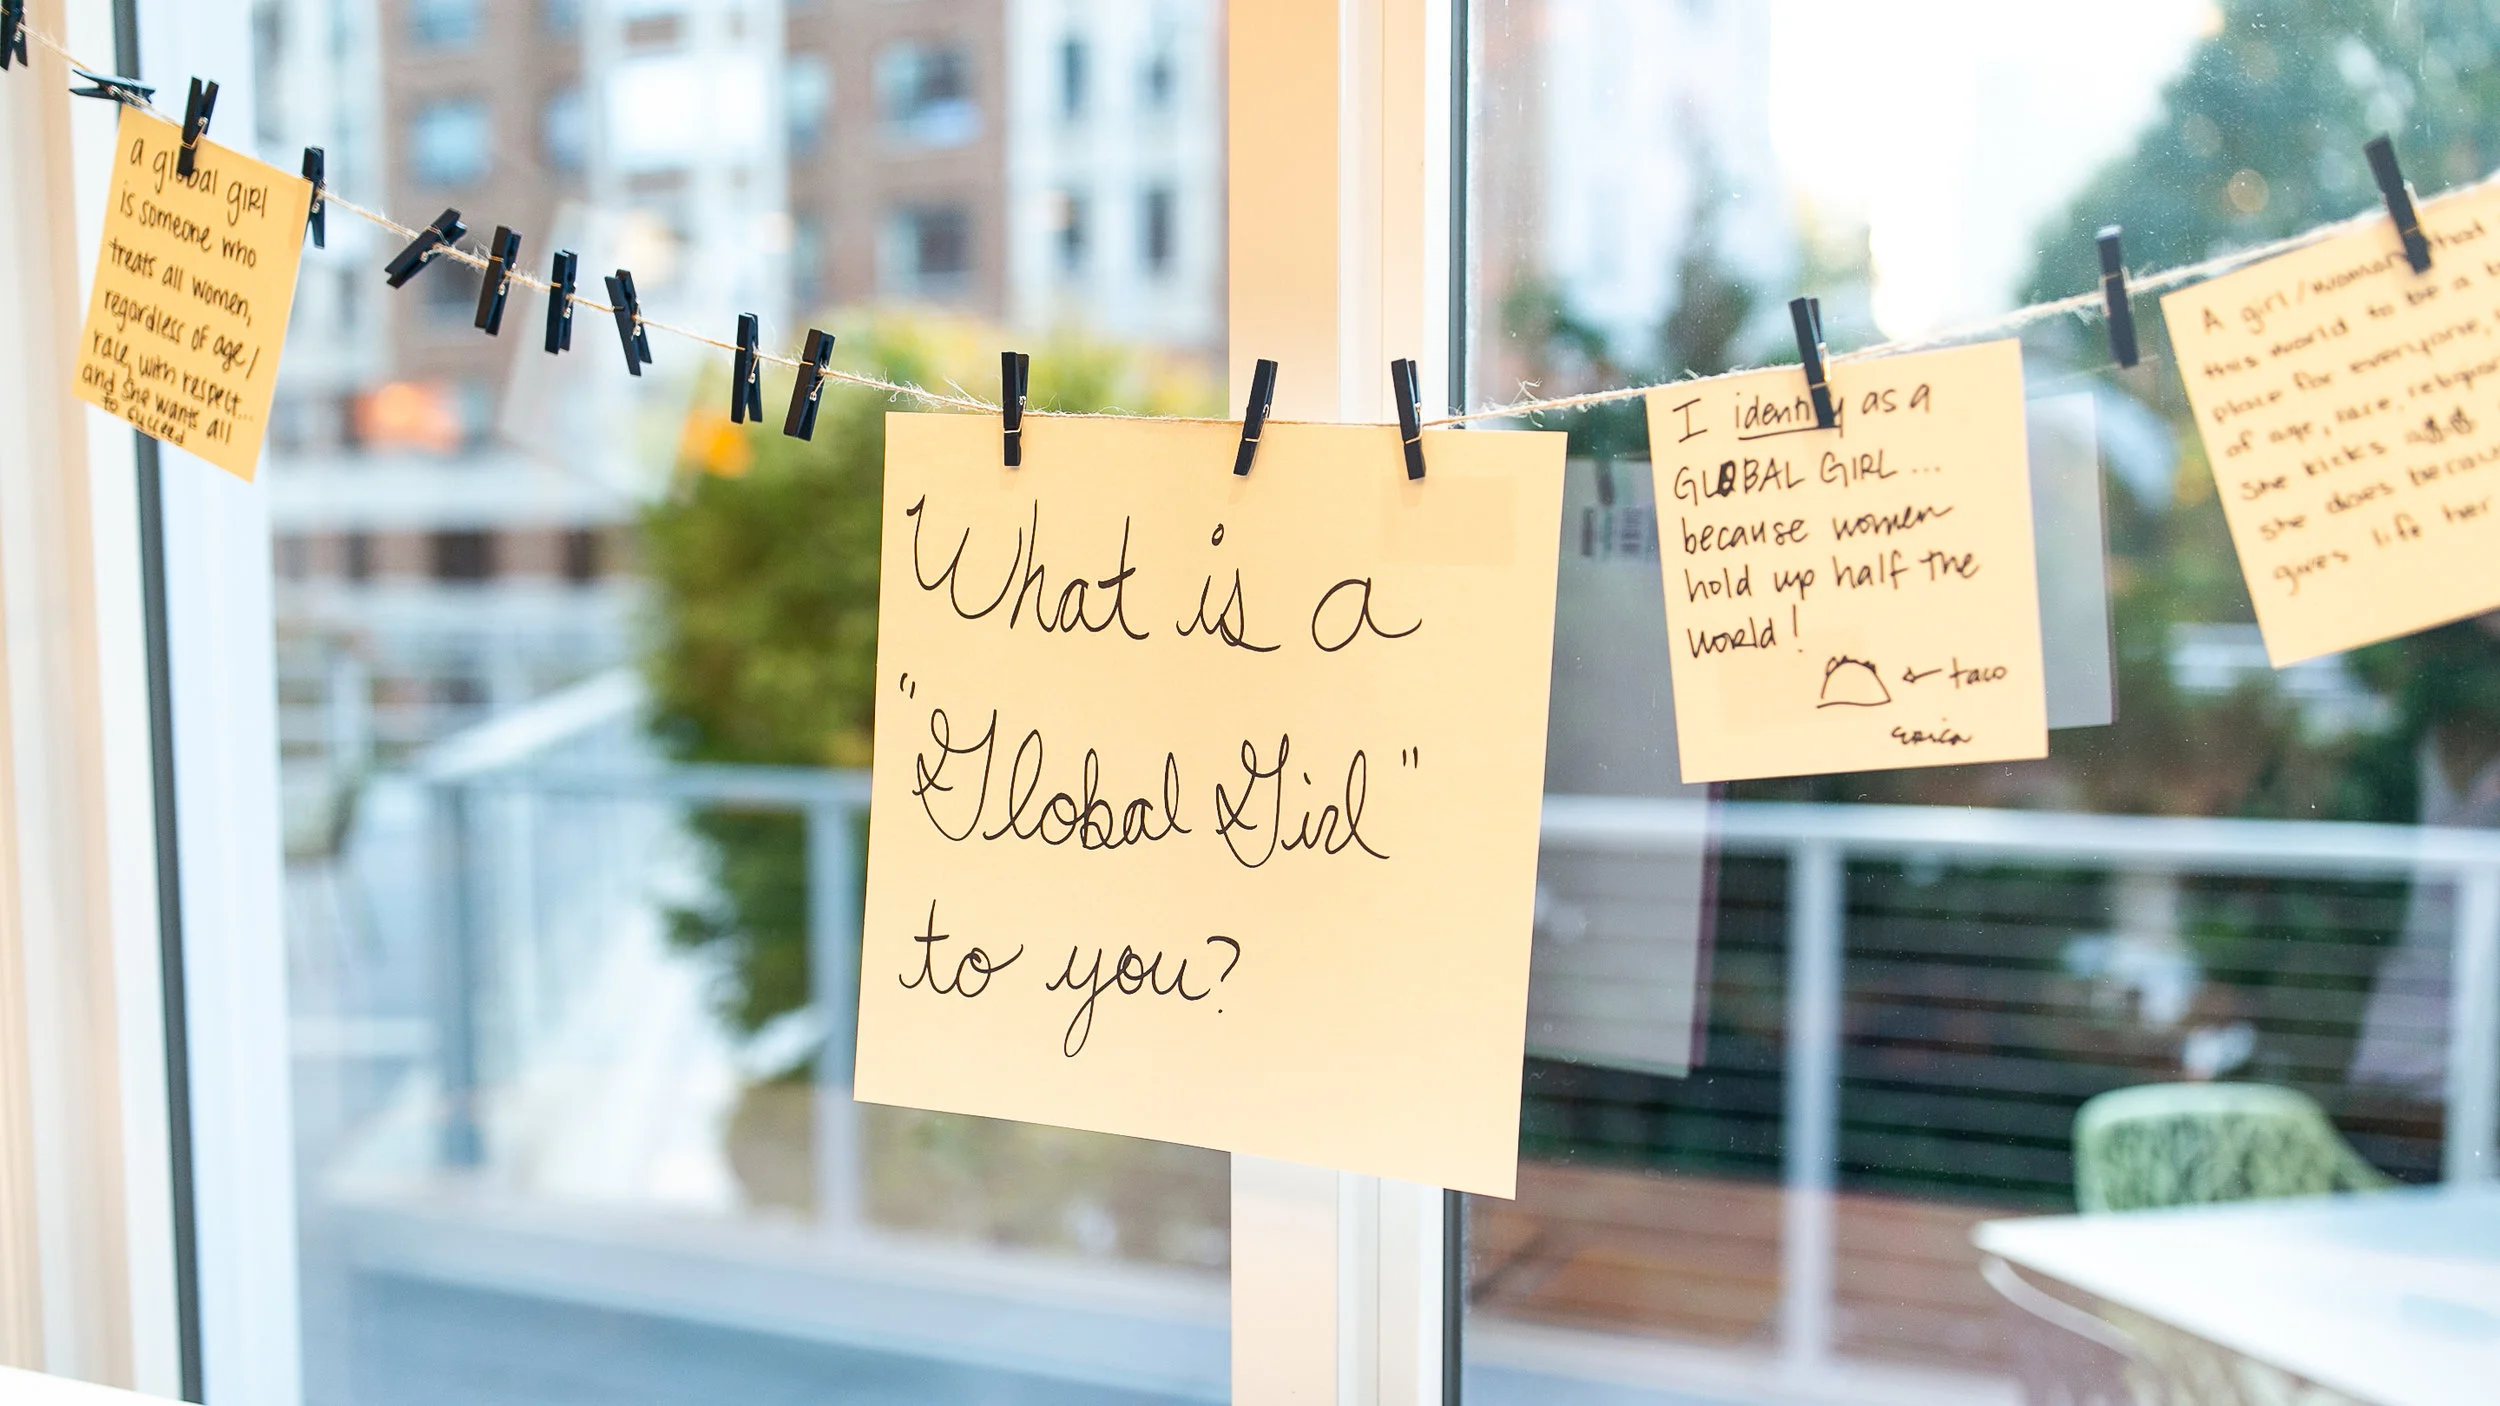 a global girl
is someone who
treats all women,
regardless of age/
race, with respect...
and she wants all
to succeed
What is a
"Global Girl"
to you?
I identify as a
GLOBAL GIRL ...
because women
hold up half the
world!
← taco
erica
A girl/woman that
this world to be a
place for everyone,
of age, race,
She kicks
she does
gives life her